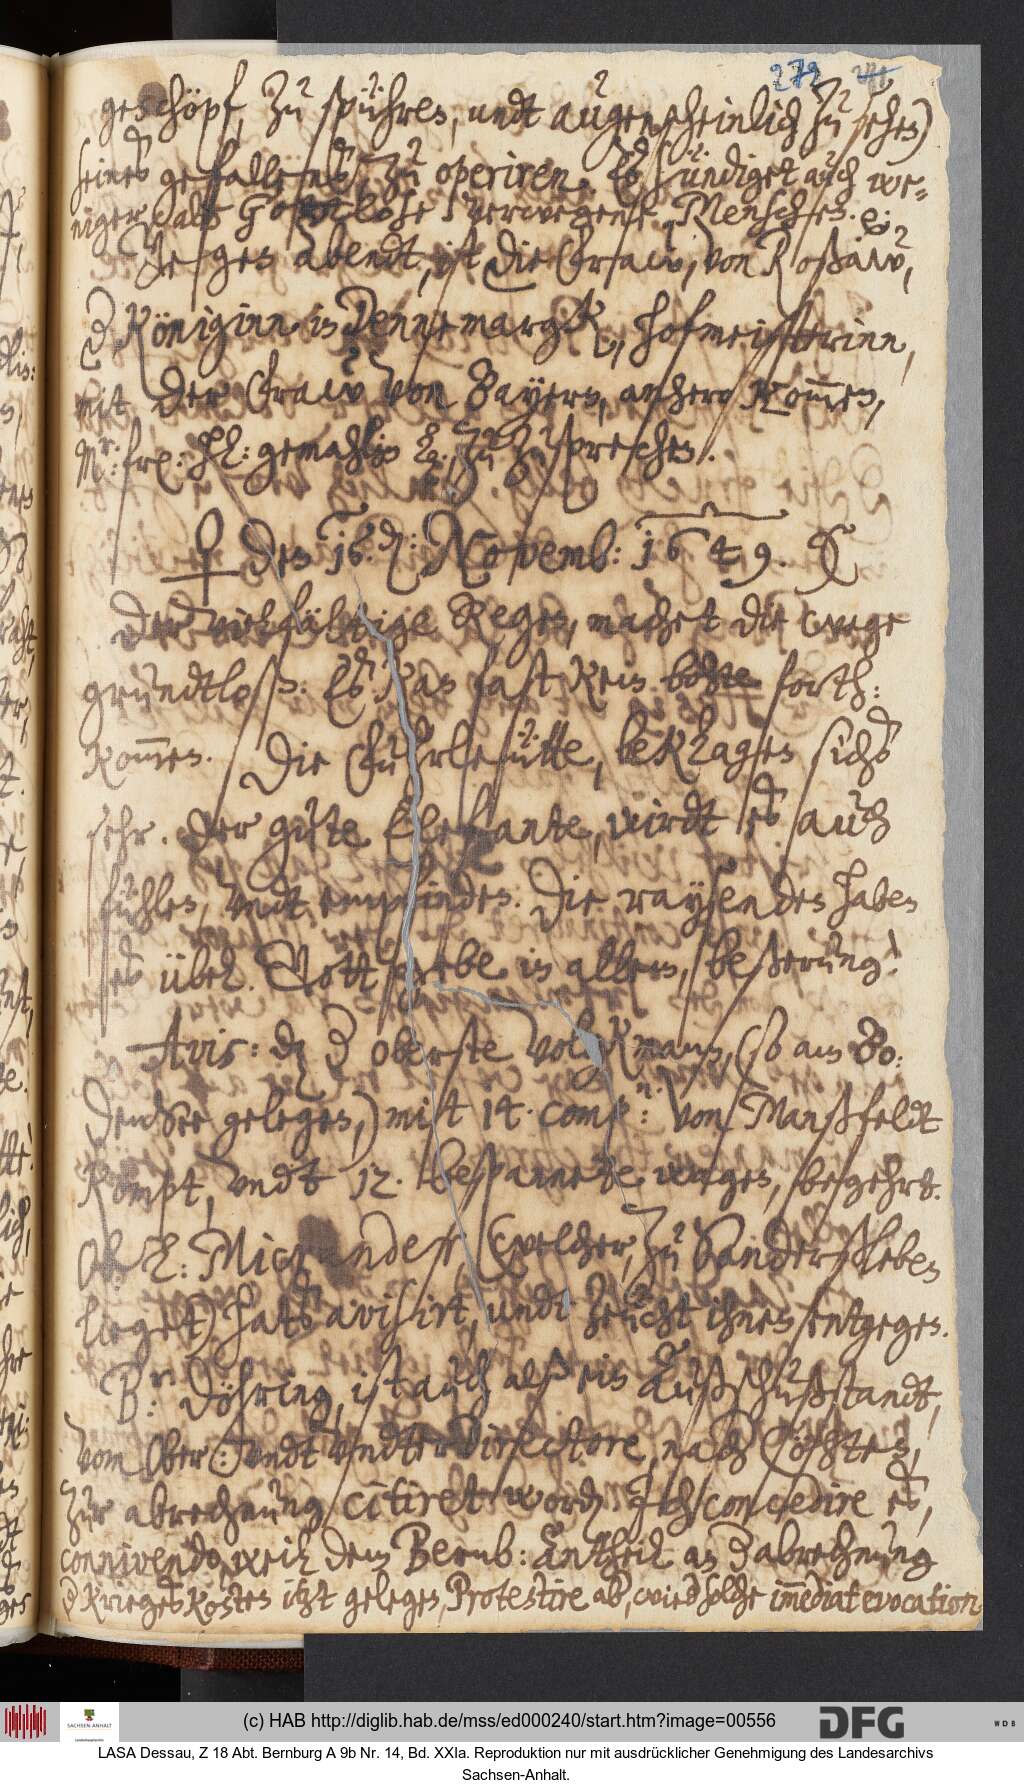 279
geschöpf, zu spühren, undt augenscheinlich zu sehen)
seines gefallens, zu operiren. Es sündiget auch we-
niger als Gottlose verwegene Menschen.
Gegen abendt, ist die Fraw, von Roßaw,
d Königinn in Dennemargk, Hofmeisterinn,
mit der Fraw von Bayern, anhero kommen,
Mr: frl: hl: gemahlin zuzusprechen.
♀ den 16. d: Novemb: 1649.
Der vielfältige Regen, machet die wege
grundtloß. Es kan fast kein bohte forth:
kommen. Die Fuhrleütte, beklagen sichs
sehr. Der gute Elefante, wirdt es auch
fühlen, undt empfinden. Die raysenden haben
es übel. Gott gebe in allem, beßerung!
Avis: dz d oberste Volgkmann, (so am Bo:
densee gelegen,) mitt 14. comp.n: von Manßfeldt
kömpt, undt 12. bespannete wagen, begehrt.
Ob. L: Micrander (welcher, zu Sanderßleben
lieget) hats avisirt, undt zeücht ihnen entgegen.
Br: Döhring, ist auch alß ein Außschußstandt,
vom Ober: undt Undter Directore, nach Cöhten,
zur abrechnung citiret word. Ich concedire es,
connivendo, weil dem Bernb: Antheil an d abrechnung
d Krieges Kosten itzt gelegen, Protestire ab, wied solche immediat evocation
(c) HAB http://diglib.hab.de/mss/ed000240/start.htm?image=00556
DFG
WDB
SACHSEN-ANHALT
LASA Dessau, Z 18 Abt. Bernburg A 9b Nr. 14, Bd. XXIa. Reproduktion nur mit ausdrücklicher Genehmigung des Landesarchivs
Sachsen-Anhalt.